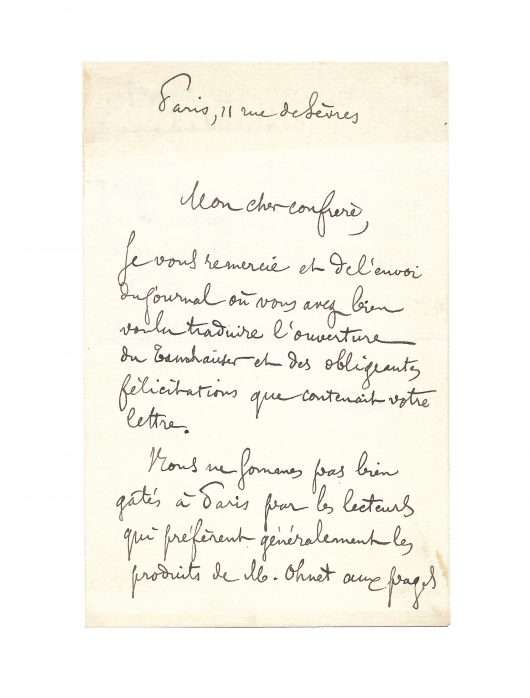 Paris, 11 rue de Sèvres
Mon cher confrère,
Je vous remercie et de l'envoi
du journal où vous avez bien
voulu traduire l'ouverture
du Tannhäuser et des obligeantes
félicitations que contenait votre
lettre.
Nous ne sommes pas bien
gâtés à Paris par les lecteurs
qui préfèrent généralement les
produits de M. Ohnet aux pages